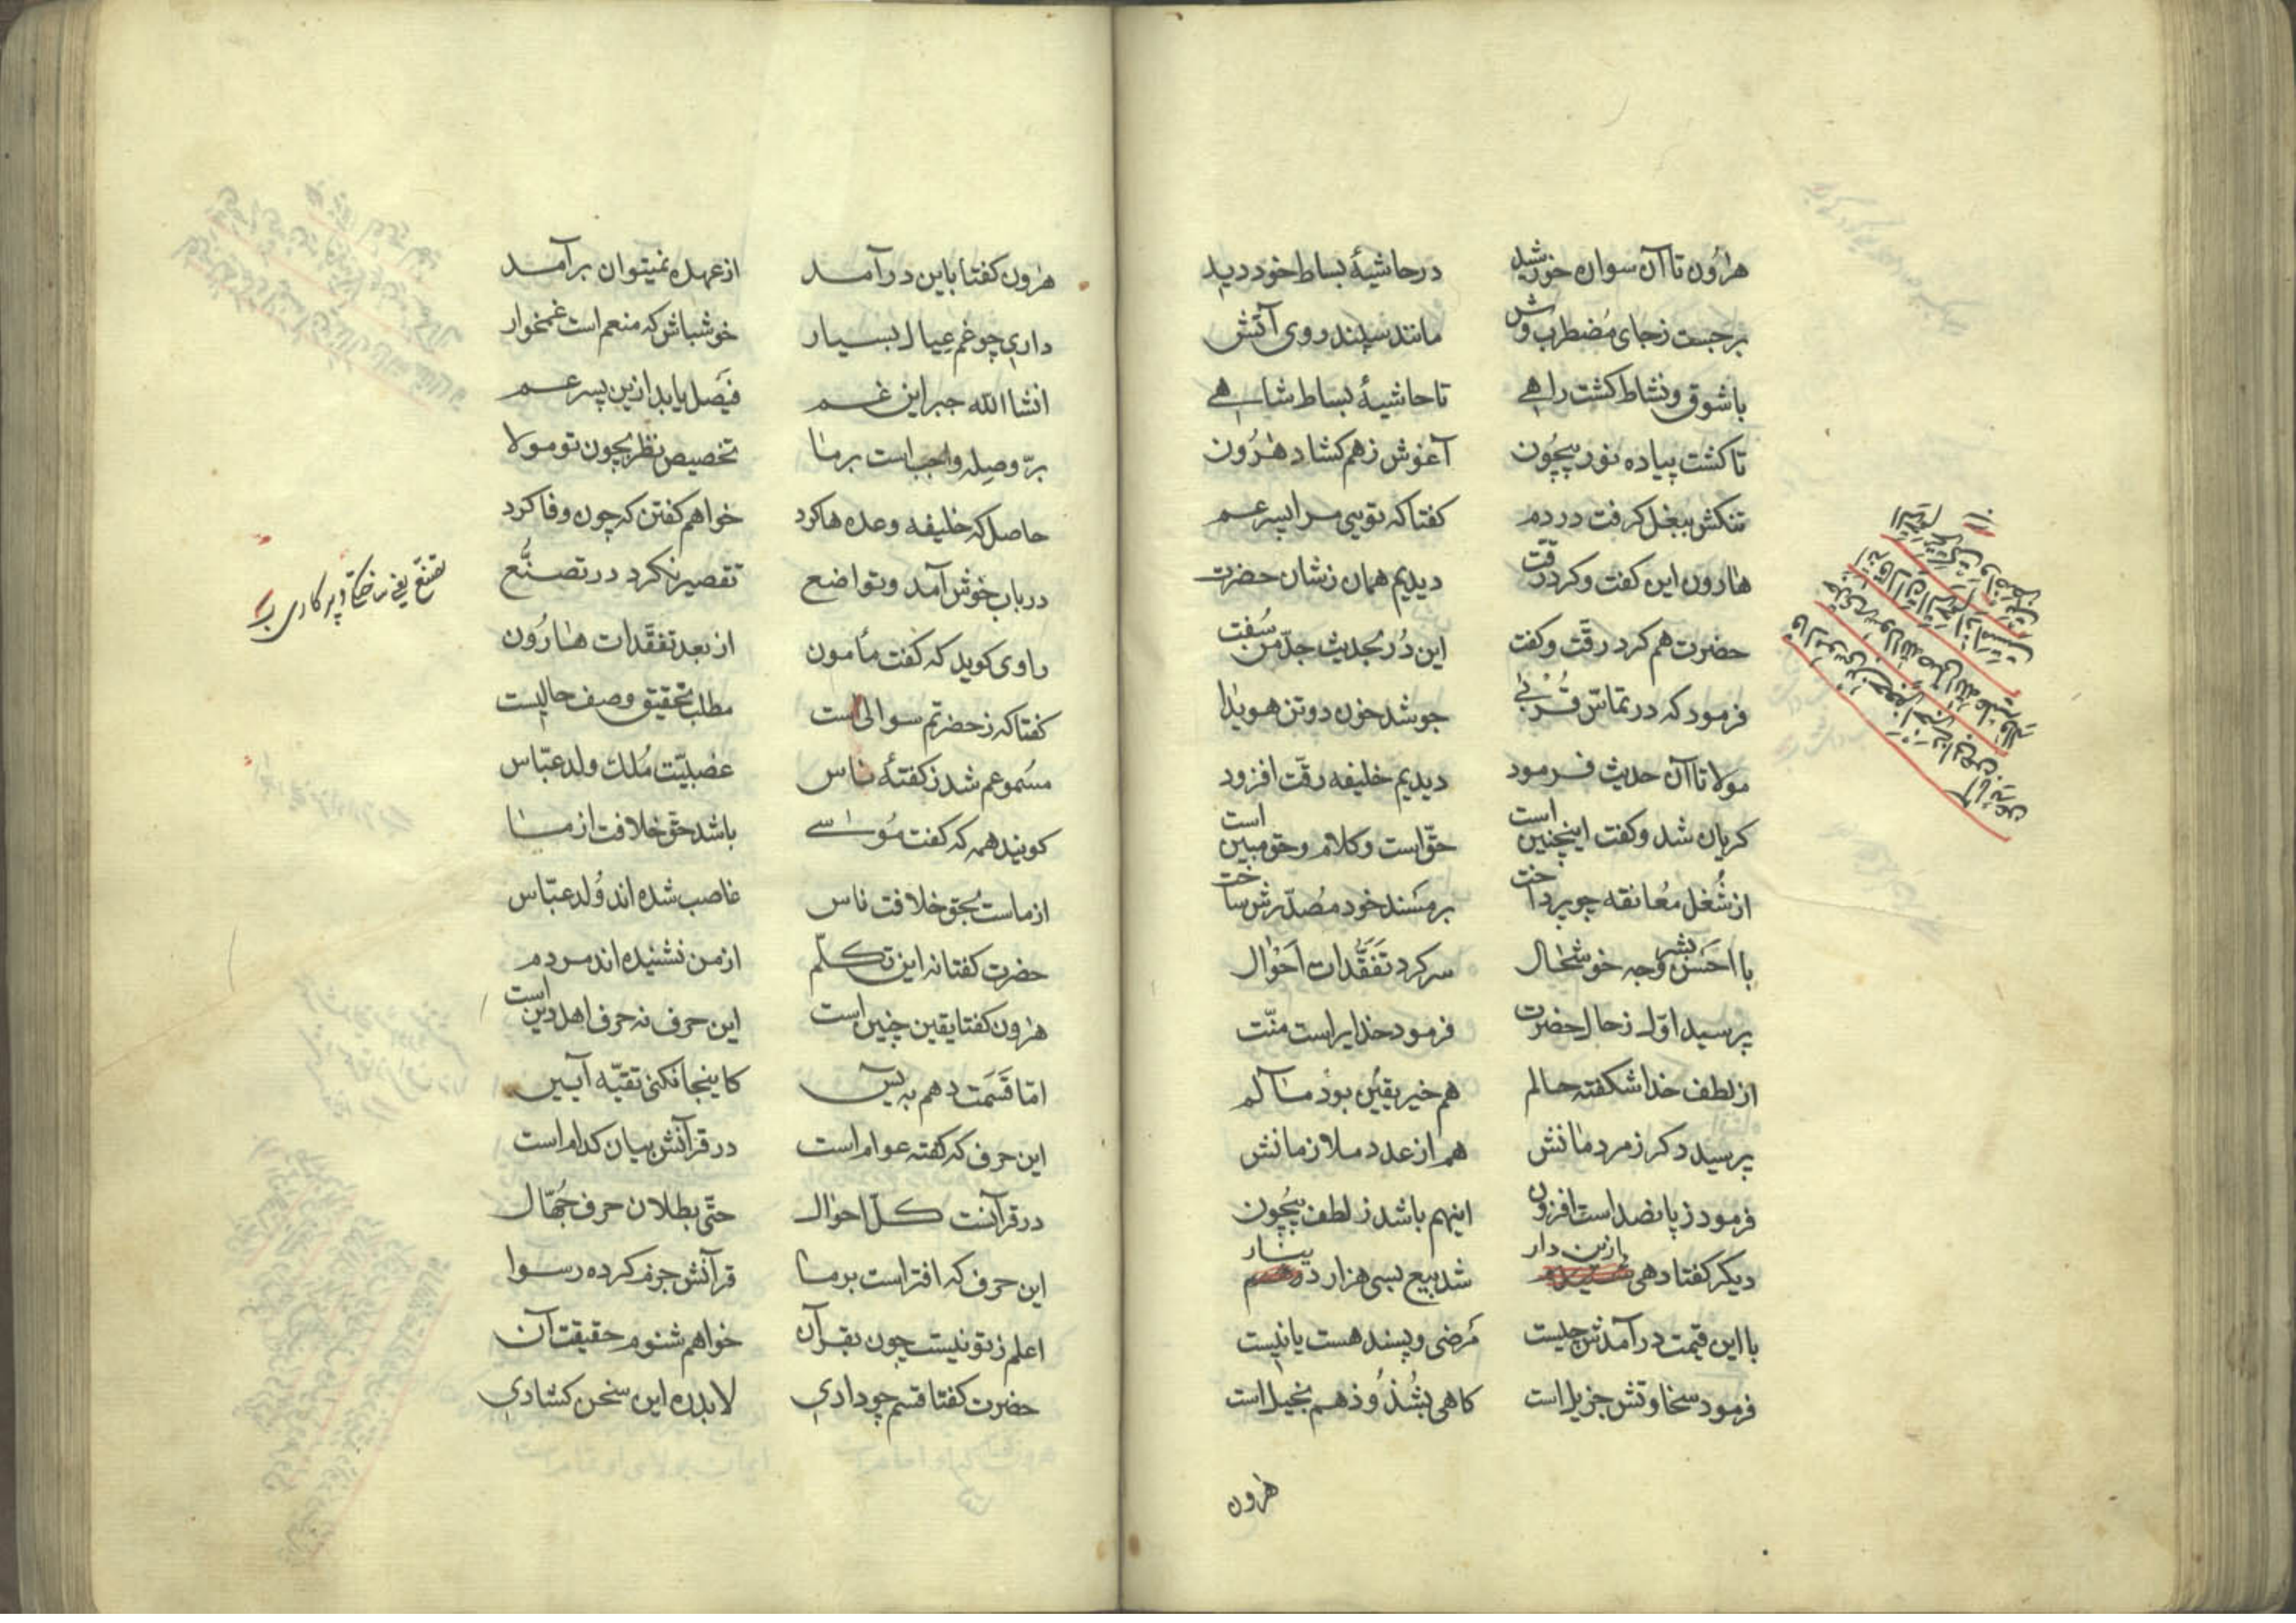 هرون تا آن سواره خورشید در حاشیهٔ بساط خود دید
برجست زجای مضطرب وش مانند سپند روی آتش
با شوق و نشاط کشت راهی تا حاشیهٔ بساط شاهی
تا کشت پیاده نور بیچون آغوش زهم کشاد هرون
تنکش ببغل کرفت در دم کفتا که تویی مرا پسر عم
هارون این کفت و کرد رقت دیدیم همان زشان حضرت
حضرت هم کرد رقت و کفت این در بحدیث جد من سفت
فرمود که در تماس قربی جوشد خون دو تن هویدا
مولا تا آن حدیث فرمود دیدیم خلیفه رقت افزود
کریان شد و کفت اینچنین است حق است و کلام و حق مبین است
از شغل معانقه چو پرداخت بر مسند خود مصدرش ساخت
با احسن وجه بشر خوشحال سر کرد تفقدات احوال
پرسید اول زحال حضرت فرمود خدایراست منت
از لطف خدا شکفته حالم هم خیر یقین بود مآلم
پرسید دکر زمردمانش هم از عدد ملازمانش
فرمود زپانصد است افزون اینهم باشد زلطف بیچون
دیکر کفتا دهی ازین دار شد بیع بسی هزار دینار
با این قیمت درآمدش چیست مرضی و پسند هست یا نیست
فرمود سخاوتش جزیل است کاهی بشذوذ هم بخیل است
هرون
هرون کفتا باین درآمد از عهده نمیتوان برآمد
داری چو غم عیال بسیار خوشباش که منعم است غمخوار
انشاالله جبر این غم فیصل یابد ازین پسر عم
بر وصله واجب است برما تخصیص نظر بچون تو مولا
حاصل که خلیفه وعده ها کرد خواهم کفتن که چون وفا کرد
در باب خوش آمد و تواضع تقصیر نکرد در تصنع
راوی کوید که کفت مأمون از بعد تفقدات هارون
کفتا که زحضرتم سوالی است مطلب تحقیق وصف حالیست
مسموعم شد زکفتهٔ ناس غصبیت ملک ولد عباس
کویند همه که کفت موسی باشد حق خلافت از ما
از ماست بحق خلافت ناس غاصب شده اند ولد عباس
حضرت کفتا نه این تکلم از من نشنیده اند مردم
هرون کفتا یقین چنین است این حرف نه حرف اهل دین است
اما قسمت دهم به یس کاینجا نکنی تقیه آیین
این حرف که کفته عوام است در قرآنش بیان کدام است
در قرآنست کل احوال حتی بطلان حرف جهال
این حرف که افتراست برما قرآنش جزم کرده رسوا
اعلم زتو نیست چون بقرآن خواهم شنوم حقیقت آن
حضرت کفتا قسم چو دادی لابد ره این سخن کشادی